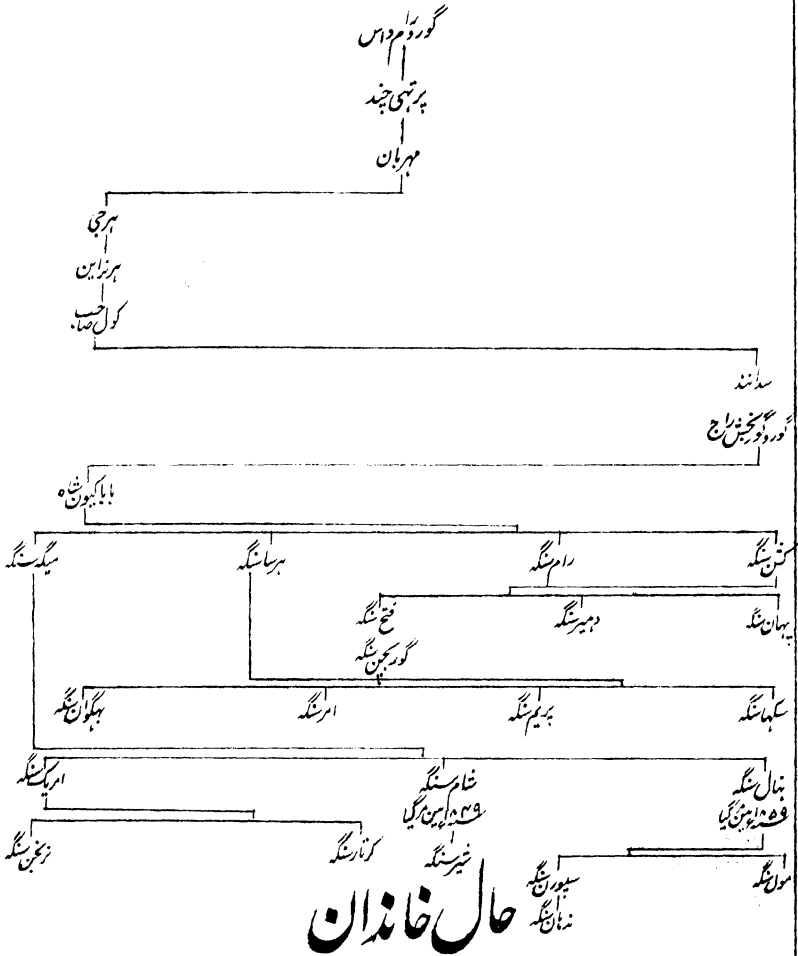 گورو رام داس
پرتھی چند
مہربان
ہرجی
ہرنراین
کول صاحب
سدانند
گورو گوربخش راج
بابا کیون شاہ
کشن سنگہ رام سنگہ ہرسا سنگہ میگہ سنگہ
پہان سنگہ دہیر سنگہ فتح سنگہ
گوربچن سنگہ
سکہا سنگہ پریم سنگہ امر سنگہ بہگوان سنگہ
نہال سنگہ شام سنگہ امریک سنگہ
۱۸۵۹ء مین مرگیا ۱۸۴۹ء مین مرگیا
مول سنگہ سیورن سنگہ شیر سنگہ کرتار سنگہ نرنجن سنگہ
ندہان سنگہ
حال خاندان